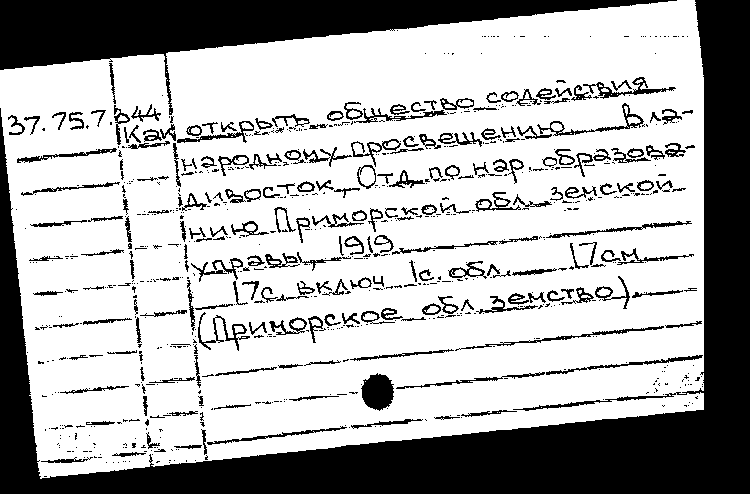 37.75.7.344
Как открыть общество содействия
народному просвещению. Вла-
дивосток, Отд. по нар. образова-
нию Приморской обл. земской
управы, 1919.
17с. включ 1с. обл. 17см.
(Приморское обл. земство).